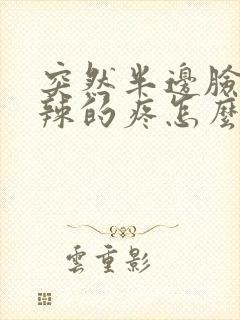 突然半邊臉
辣的疼怎麼
雲重影